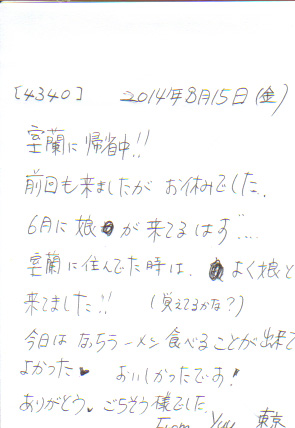 [4340] 2014年8月15日(金)
室蘭に帰省中!!
前回も来ましたが お休みでした.
6月に娘が来てるはず....
室蘭に住んでた時は、よく娘と
来てました!! (覚えてるかな?)
今日は なっちラーメン食べることが出来て
よかった♥ おいしかったです!
ありがとう。ごちそう様でした
From Yuu 東京